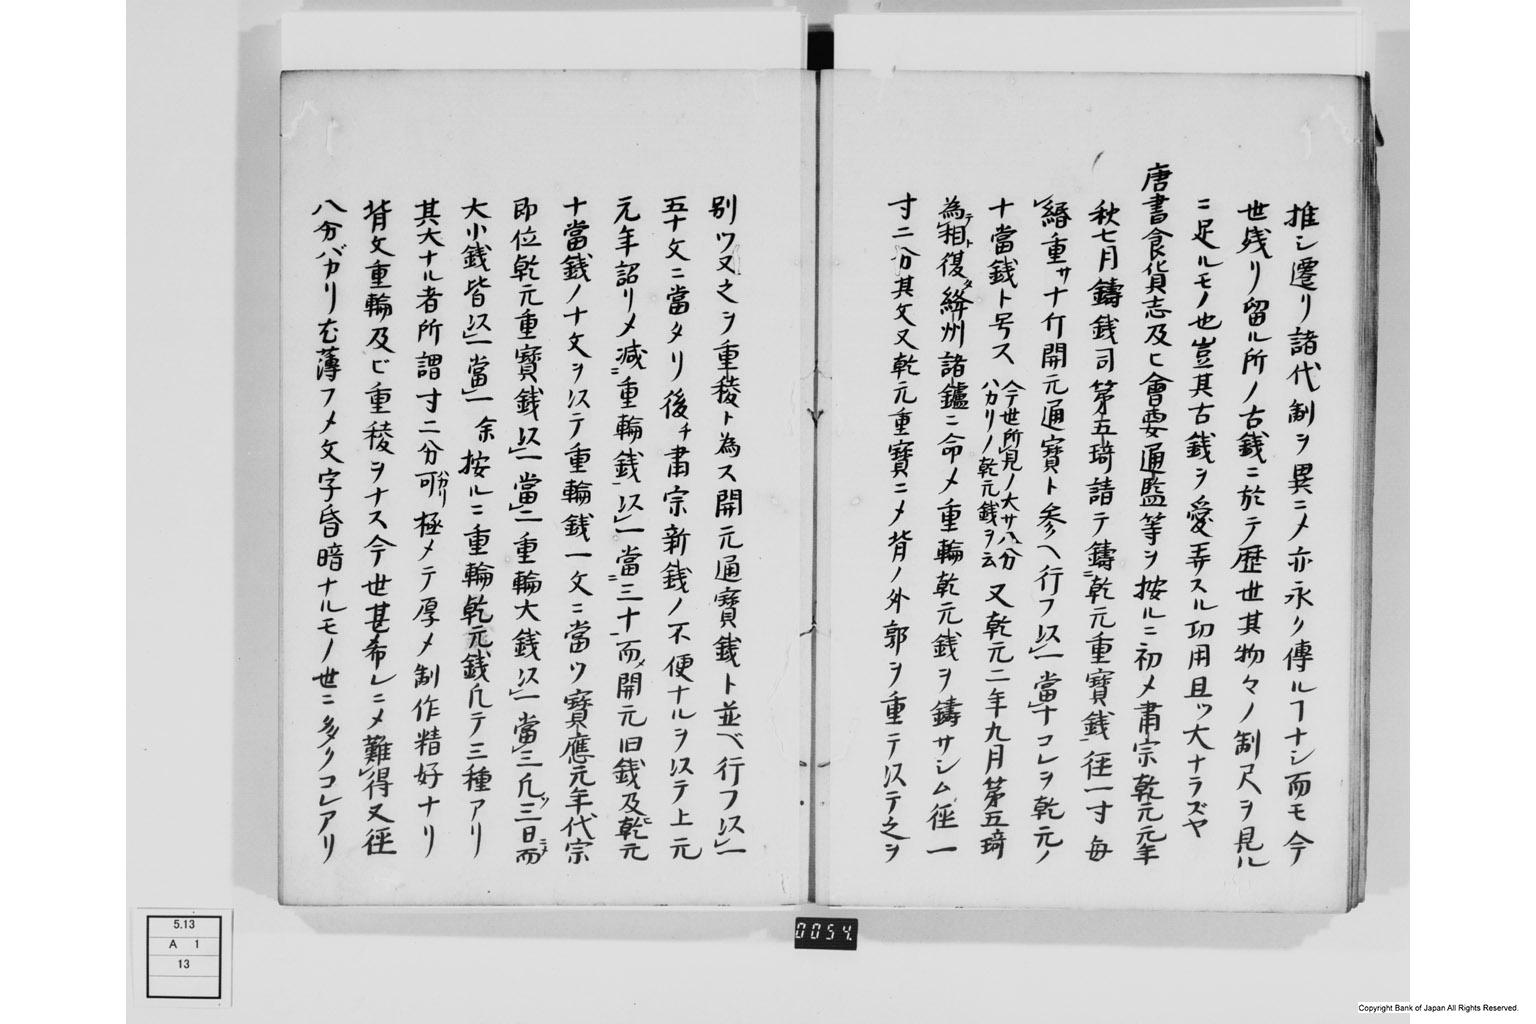 推シ遷リ諸代制ヲ異ニメ亦永ク傳ルヿナシ而モ今
世残リ留ル所ノ古銭ニ於テ歴世其物々ノ制尺ヲ見ル
ニ足ルモノ也豈其古銭ヲ愛弄スル功用且ッ大ナラズヤ
唐書食貨志及ヒ會要通監等ヲ按ルニ初メ肅宗乾元元年
秋七月鑄銭司第五琦請テ鑄ニ乾元重寶銭ヲ径一寸毎
緡重サ十斤開元通寶ト参ヘ行フ以一當十コレヲ乾元ノ
十當銭ト号ス今世所見ノ大サ八分ハカリノ乾元銭ヲ云又乾元二年九月第五琦
為テ相ト復タ絳州諸鑪ニ命メ重輪乾元銭ヲ鑄サシム径一
寸二分其文又乾元重寶ニメ背ノ外郭ヲ重テ以テ之ヲ
別ツ又之ヲ重稜ト為ス開元通寶銭ト並ベ行フ以一
五十文ニ當タリ後チ肅宗新銭ノ不便ナルヲ以テ上元
元年詔リメ減ニ重輪銭以一當ニ三十而メ開元旧銭及ヒ乾元
十當銭ノ十文ヲ以テ重輪銭一文ニ當ツ寶應元年代宗
即位乾元重寶銭以一當二重輪大銭以一當三凡ッ三日而ニメ
大小銭皆以一當一余按ルニ重輪乾元銭凡テ三種アリ
其大ナル者所謂寸二分可ハカリ極メテ厚メ制作精好ナリ
背文重輪及ビ重稜ヲナス今世甚希レニメ難得又径
八分バカリ尤薄フメ文字昏暗ナルモノ世ニ多クコレアリ
5.13
A 1
13
0054.
Copyright Bank of Japan All Rights Reserved.